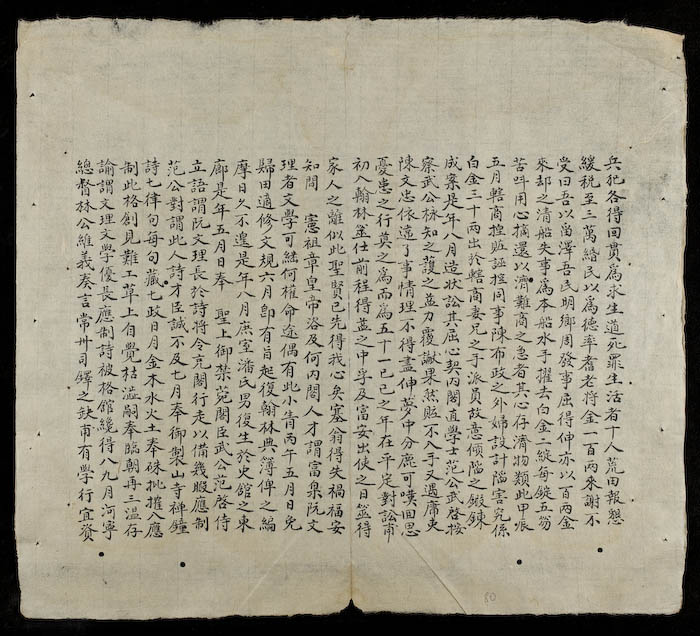 兵犯各得回貫為求生道死罪生活者十人荒田報懇
緩税至三萬緡民以為德率耆老將金一百兩來謝不
受曰吾以當澤吾民明鄉周發事屈得伸亦以百兩金
來却之清船失事為本船水手擢去白金二綻每錠五笏
苦吽用心摘還以濟難商之急者其心存濟物類此甲辰
五月轄商捏賍誣控同事陳布政之外婦設計陷害究係
白金三十兩出於轄商妻兄之手派員故意傾陷之鍜鍊
成案是年八月造狀訟其屈心契內閣直學士范公武啓按
察武公栃知之護之益力覆讞果然賍不入手又遇席吏
陳文忠依違了事情理不得盡伸夢中分鹿可嘆回思
憂患之行莫之為而為五十一已巳之年在平定對訟甫
初入翰林筮仕前程得蠱之中孚及富安出使之日筮得
家人之離似此聖賢已先得我心矣塞翁得失禍福安
知問 憲祖章皇帝洛及何內閣人才謂富梟阮文
理者文學可継何權命途偶有此小眚丙午五月日免
歸田適修文規六月卽有旨起復翰林典簿俾之編
摩日久不遑是年八月庶室潘氏男復生於史館之東
廊是年五月日奉 聖上御禁苑閣臣武公范啓侍
立語謂阮文理長於詩將令充閣行走以備幾暇應制
范公對謂此人詩才臣誠不及七月奉御製山寺禅鐘
詩七律句每句藏七政日月金木水火土奉硃批擢入應
制此格創見難工草上自覺枯澁嗣奉臨朝再三溫存
諭謂文理文學優長應制詩被格館纔得八九月河寧
總督林公維義奏言常卅司鐸之缺甫有學行宜資
80